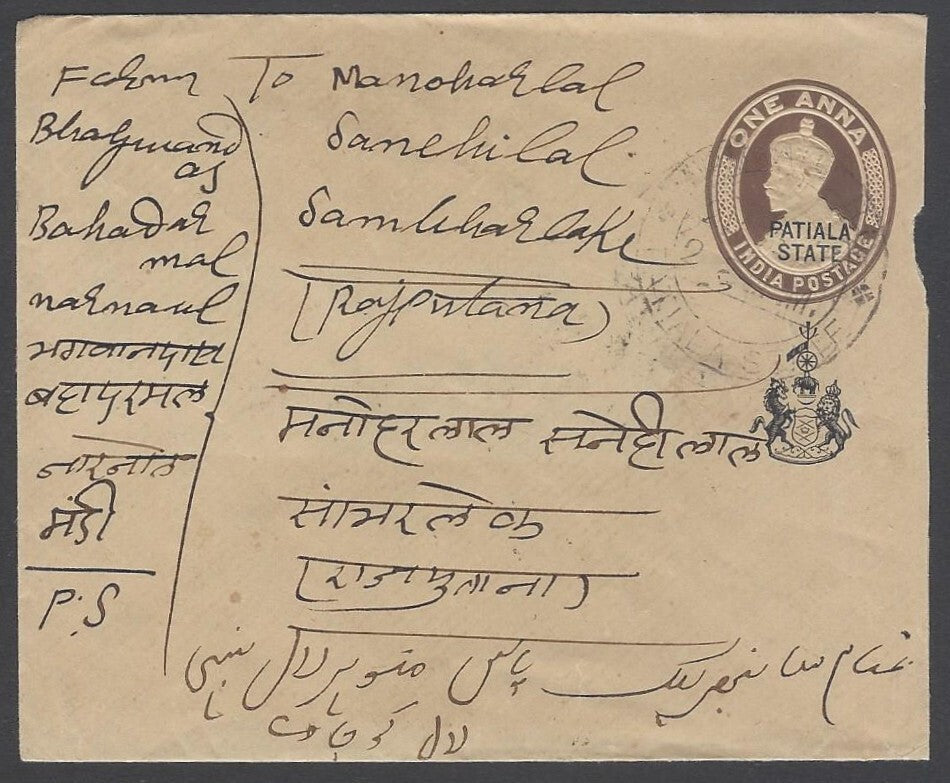 From
Bhagwand
as
Bahadar
mal
narnaul
भगवानदास
बहादुरमल
नारनोल
मंडी
P.S
To Manoharlal
Sanehilal.
Sambharlake
(Rajputana)
मनोहरलाल सनेहीलाल
सांभरलेक
(राजपुताना)
مقام سانبھر لیک پاس منوہر لال
لال
ONE ANNA
PATIALA
STATE
INDIA POSTAGE